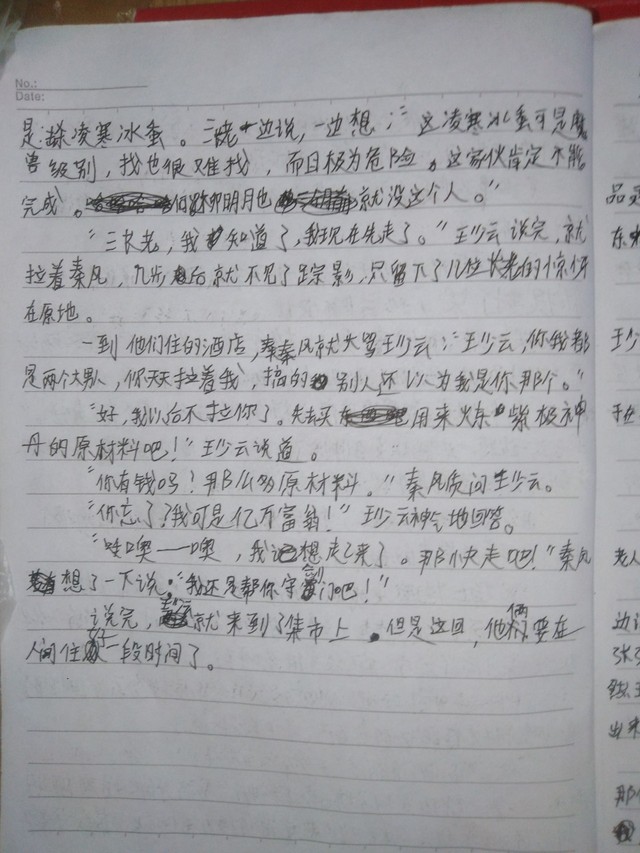 No.:
Date:
是:株凌寒冰蚕。三长老一边说，一边想："这凌寒冰蚕可是魔
兽级别，找也很难找，而且极为危险。这家伙肯定不能
完成。明月也就没这个人。"
"三长老，我知道了，我现在先走了。"王少云说完，就
拉着秦风，几步后就不见了踪影，只留下了几位长老的惊讶
在原地。
一到他们住的酒店，秦秦风就大骂王少云："王少云，你我都
是两个大男人，你天天拉着我，搞的别人还以为我是你那个。"
"好，我以后不拉你了。先去买用来炼紫极神
丹的原材料吧！"王少云说道。
"你有钱吗？那么多原材料。"秦风质问王少云。
"你忘了？我可是亿万富翁！"王少云神气地回答。
"哇噢——噢，我想起来了。那快走吧！"秦风
想了一下说："我还是帮你守门吧！"
说完，就来到了集市上。但是这回，他俩要在
人间住好一段时间了。
品
东
王少
拉
老人
边说
张
出来
那